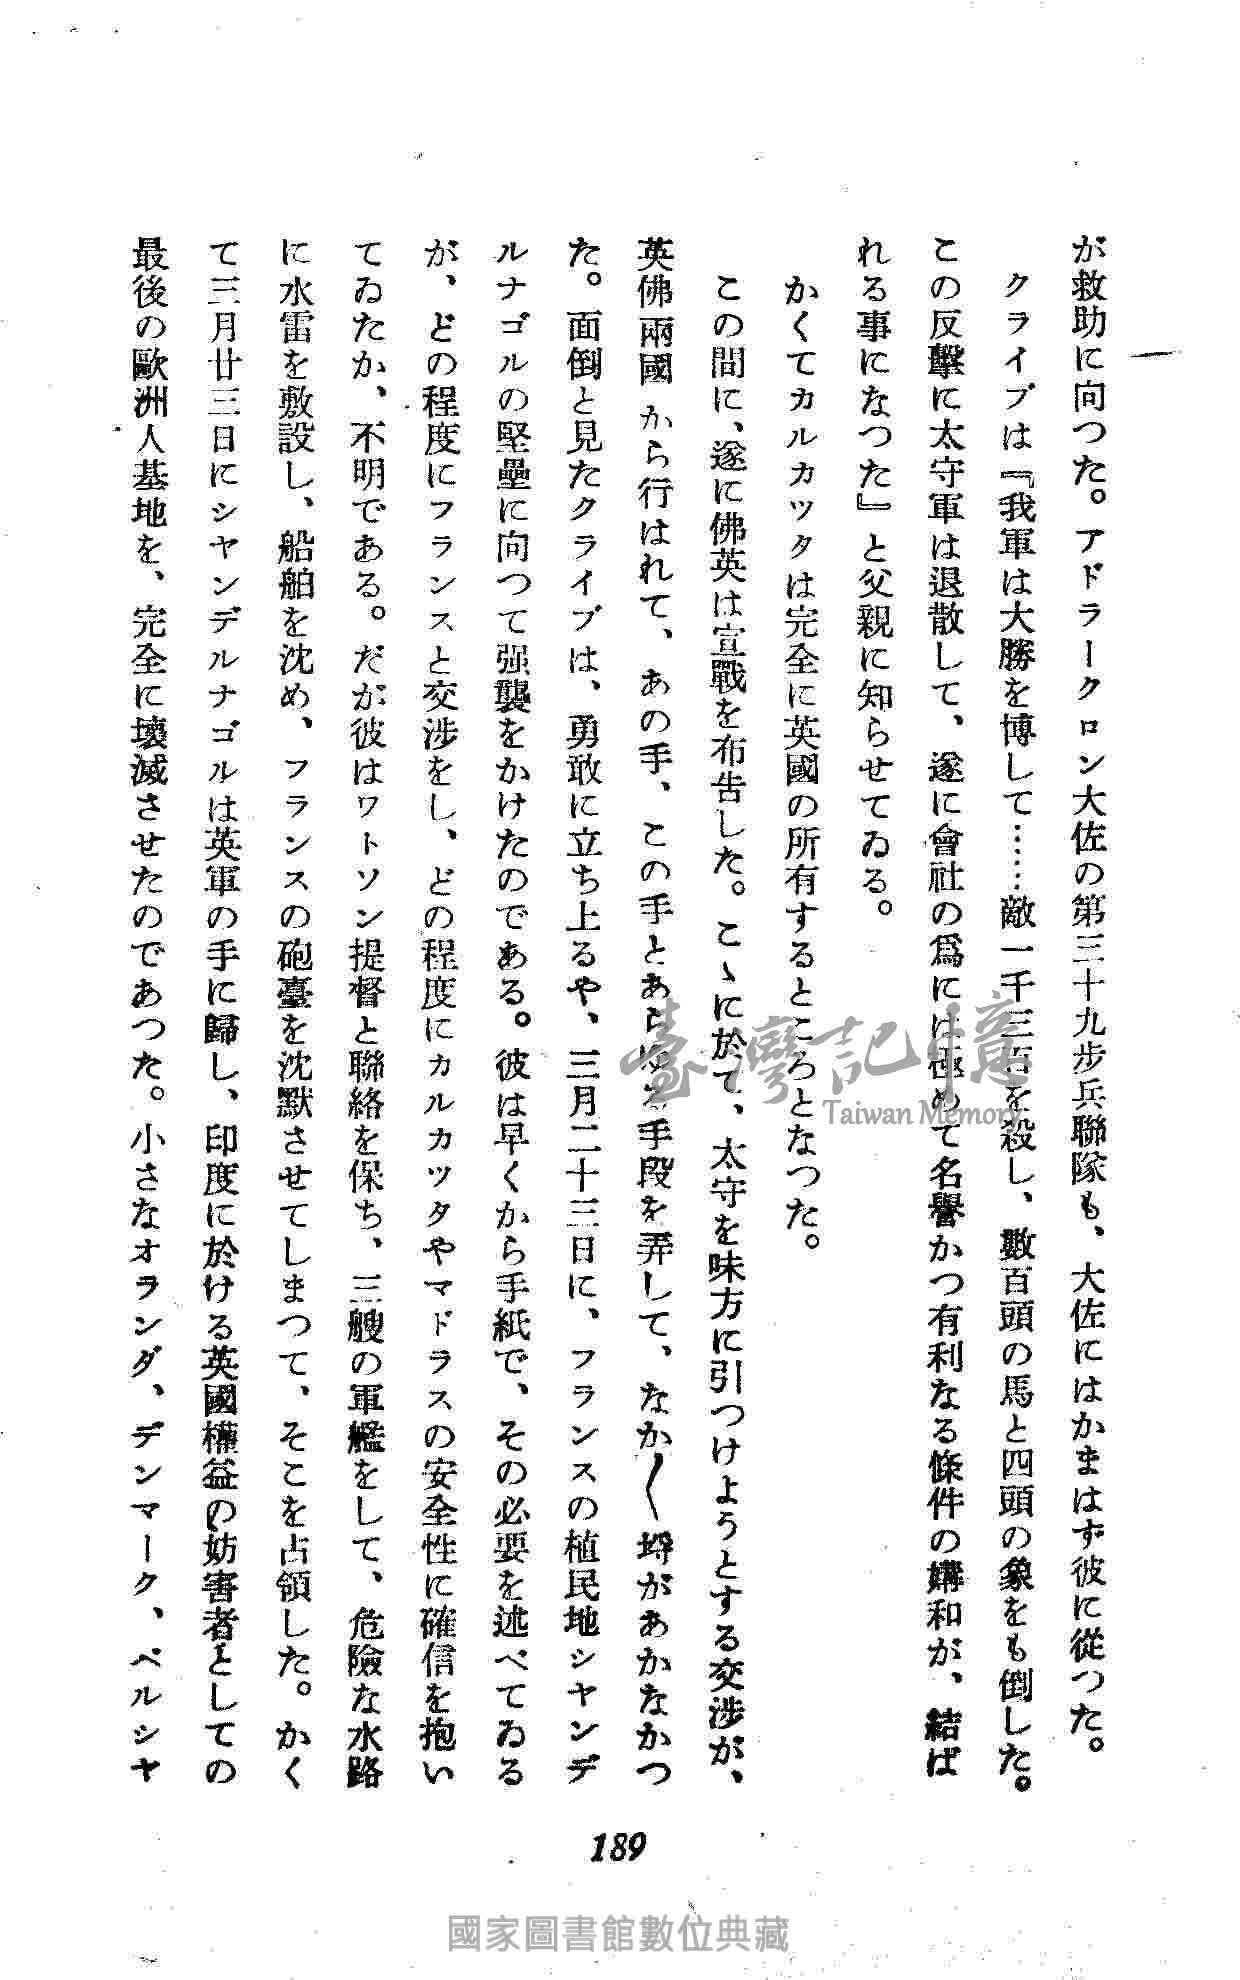 が救助に向つた。アドラークロン大佐の第三十九步兵聯隊も、大佐にはかまはず彼に從つた。
クライブは『我軍は大勝を博して……敵一千三百を殺し、數百頭の馬と四頭の象をも倒した。
この反擊に太守軍は退散して、遂に會社の爲には極めて名譽かつ有利なる條件の媾和が、結ば
れる事になつた』と父親に知らせてゐる。
かくてカルカツタは完全に英國の所有するところとなつた。
この間に、遂に佛英は宣戰を布告した。こゝに於て、太守を味方に引つけようとする交涉が、
英佛兩國から行はれて、あの手、この手とあらゆる手段を弄して、なか〱埓があかなかつ
た。面倒と見たクライブは、勇敢に立ち上るや、三月二十三日に、フランスの植民地シヤンデ
ルナゴルの堅壘に向つて强襲をかけたのである。彼は早くから手紙で、その必要を述べてゐる
が、どの程度にフランスと交涉をし、どの程度にカルカツタやマドラスの安全性に確信を抱い
てゐたか、不明である。だが彼はワトソン提督と聯絡を保ち、三艘の軍艦をして、危險な水路
に水雷を敷設し、船舶を沈め、フランスの砲臺を沈默させてしまつて、そこを占領した。かく
て三月廿三日にシヤンデルナゴルは英軍の手に歸し、印度に於ける英國權益の妨害者としての
最後の歐洲人基地を、完全に壞滅させたのであつた。小さなオランダ、デンマーク、ペルシヤ
189
臺灣記憶
Taiwan Memory
國家圖書館數位典藏